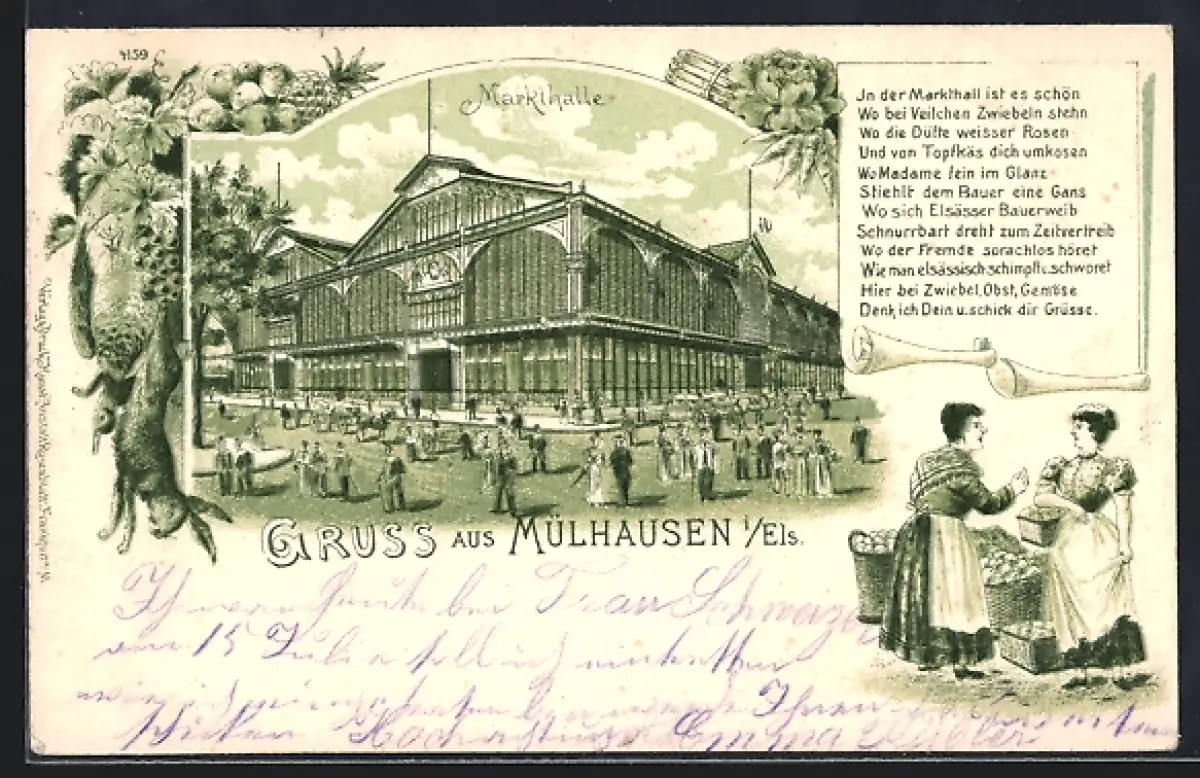 4159
Markthalle
Jn der Markthall ist es schön
Wo bei Veilchen Zwiebeln stehn
Wo die Düfte weisser Rosen
Und von Topfkäs dich umkosen
Wo Madame fein im Glanz
Stiehlt dem Bauer eine Gans
Wo sich Elsässer Bauerweib
Schnurrbart dreht zum Zeitvertreib
Wo der Fremde sprachlos höret
Wie man elsässisch schimpft u. schwöret
Hier bei Zwiebel, Obst, Gemüse
Denk ich Dein u. schick dir Grüsse.
GRUSS AUS MÜLHAUSEN i/Els.
Ich war heute bei Frau Schweizer
am 15 Juli soll ich eintretten
wie ich
schicken Hochachtungs Emma